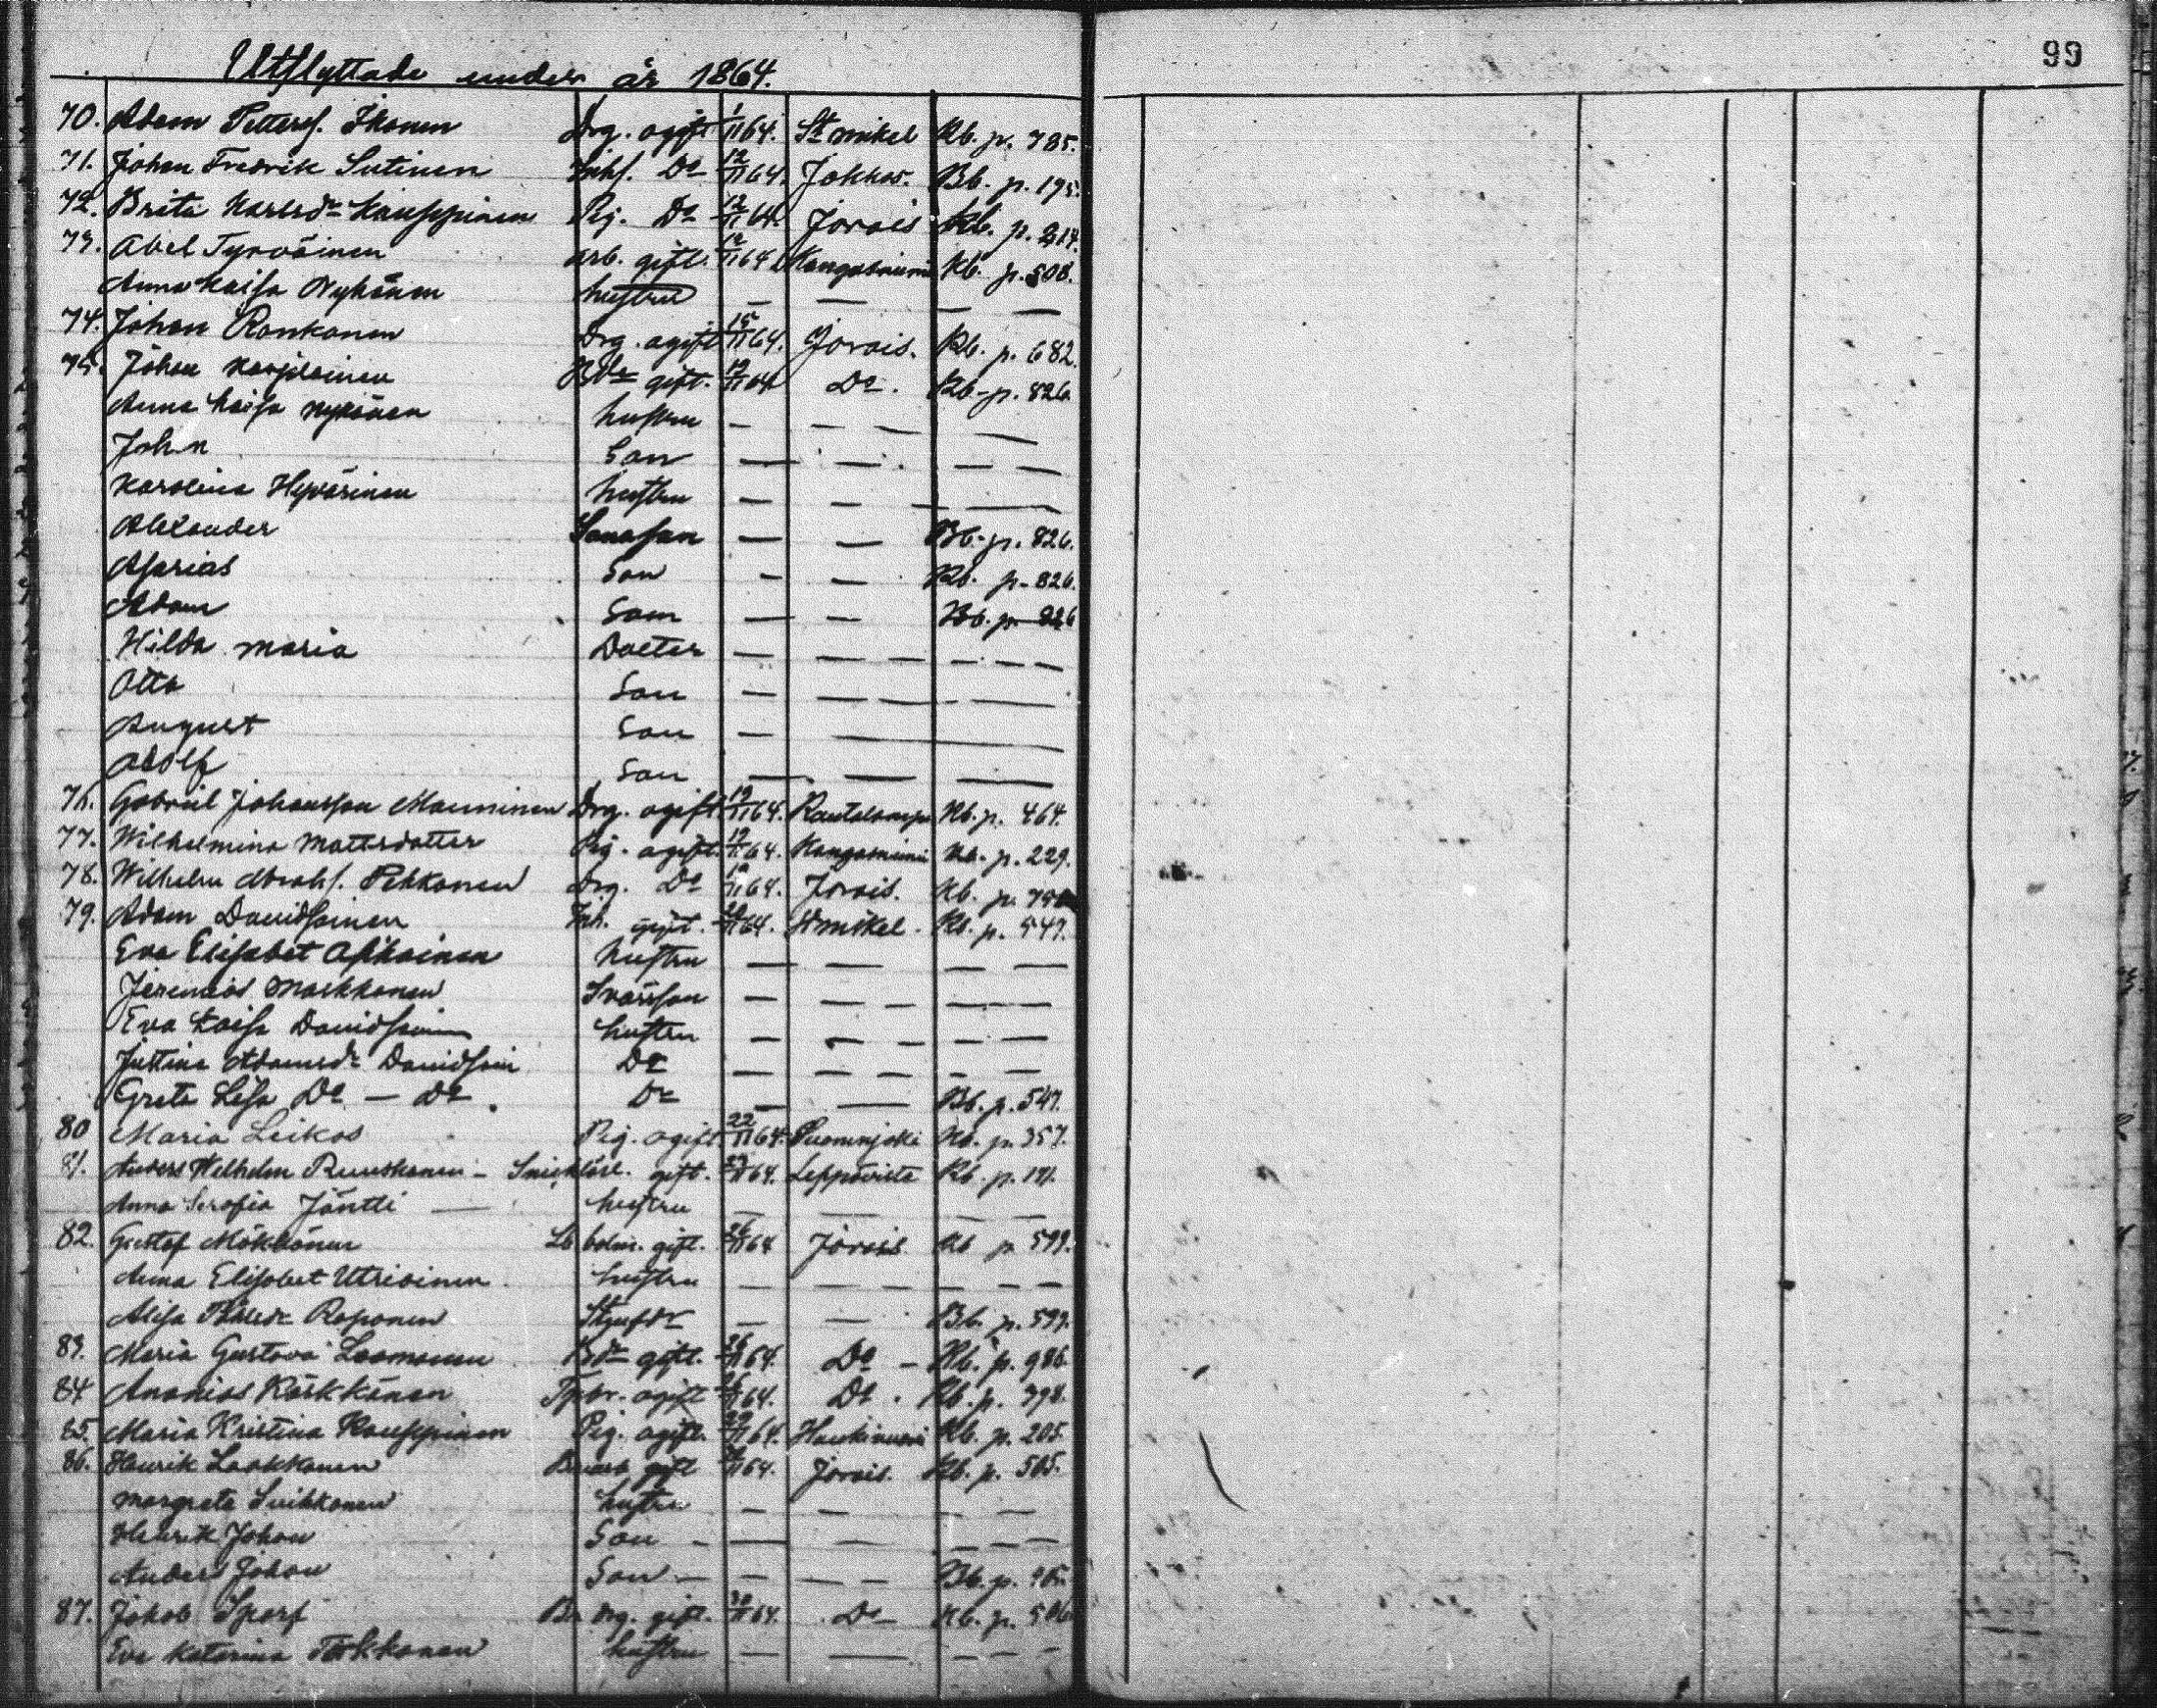 99
Utflyttade under år 1864.
70. Adam Petterss. Ikonen Drg. ogift 1/11 64. St mikel Kb. p. 785.
71. Johan Fredrik Sutinen Inhs. Do 12/11 64. Jokkas. Bb. p. 195.
72. Brita Karlsdr Kauppinen Pig. Do 12/11 64. Jorois Kb. p. 214.
73. Abel Tyrväinen arb. gift. 12/11 64 Kangasniemi Kb. p. 508.
Anna Kaisa Nykänen hustru — — — —
74. Johan Ronkanen Drg. ogift 15/11 64. Jorois. Kb. p. 682.
75. Johan Karjalainen gift. 19/11 64 Do. Kb. p. 826.
Anna Kaisa Nykänen hustru — — — —
Johan Son — — — —
Karolina Hyvärinen hustru — — — —
Alexander Sonason — — Bb. p. 826.
Asarias Son — — Kb. p. 826.
Adam Son — — Bb. p. 826
Hilda Maria Dotter — — — — — —
Otto Son — — — — —
August Son — — —
Adolf Son — — —
76. Gabriel Johansson Manninen Drg. ogift. 19/11 64. Rautalampi Kb. p. 464.
77. Wilhelmina Mattsdotter Pig. ogift. 19/11 64. Kangasniemi Kb. p. 229.
78. Wilhelm Abrahs. Pekkanen Drg. Do 19/11 64. Jorois. Kb. p.
79. Adam Davidsainen Inh. gift. 64. St mikel. Kb. p. 547.
Eva Elisabet Asikainen hustru — — — —
Jeremias Markkanen Svärson — — — — —
Eva Kaisa Davidsain hustru — — — — —
Justina Adamsdr Davidsain Dr — — — — —
Greta Lisa Do — Do. Dr — — Bb. p. 547.
80 Maria Leikas Pig. ogift. 22/11 64. Suonenjoki Kb. p. 357.
81. Anders Wilhelm Ruuskanen — gift. 64. Leppävirta Kb. p. 171.
Anna Serafia Jäntti — hustru — — — —
82. Gustaf Mökkönen gift. 26/11 64 Jorois Kb p 599.
Anna Elisabet Utriainen hustru — — — — —
Alisa Påhlsdr Roponen Styfdr — — Bb. p. 599.
83. Maria Gustava Laamanen gift. 26/11 64. Do — Kb. p. 986.
84 Ananias Kärkkänen ogift 26/11 64. Do. Kb. p. 798.
85. Maria Kristina Kauppinen Pig. ogift. 29/11 64. Haukivuori Kb. p. 205.
86. Henrik Laakkonen gift 64. Jorois. Kb. p. 505.
Margreta Suikkanen hustru — — — —
Henrik Johan Son — — — — — —
Anders Johan Son — — — — Bb. p.
87. Jakob Sparf drg. gift. 30/11 64. Do — Kb. p. 506
Eva Katarina hustru — — — — —